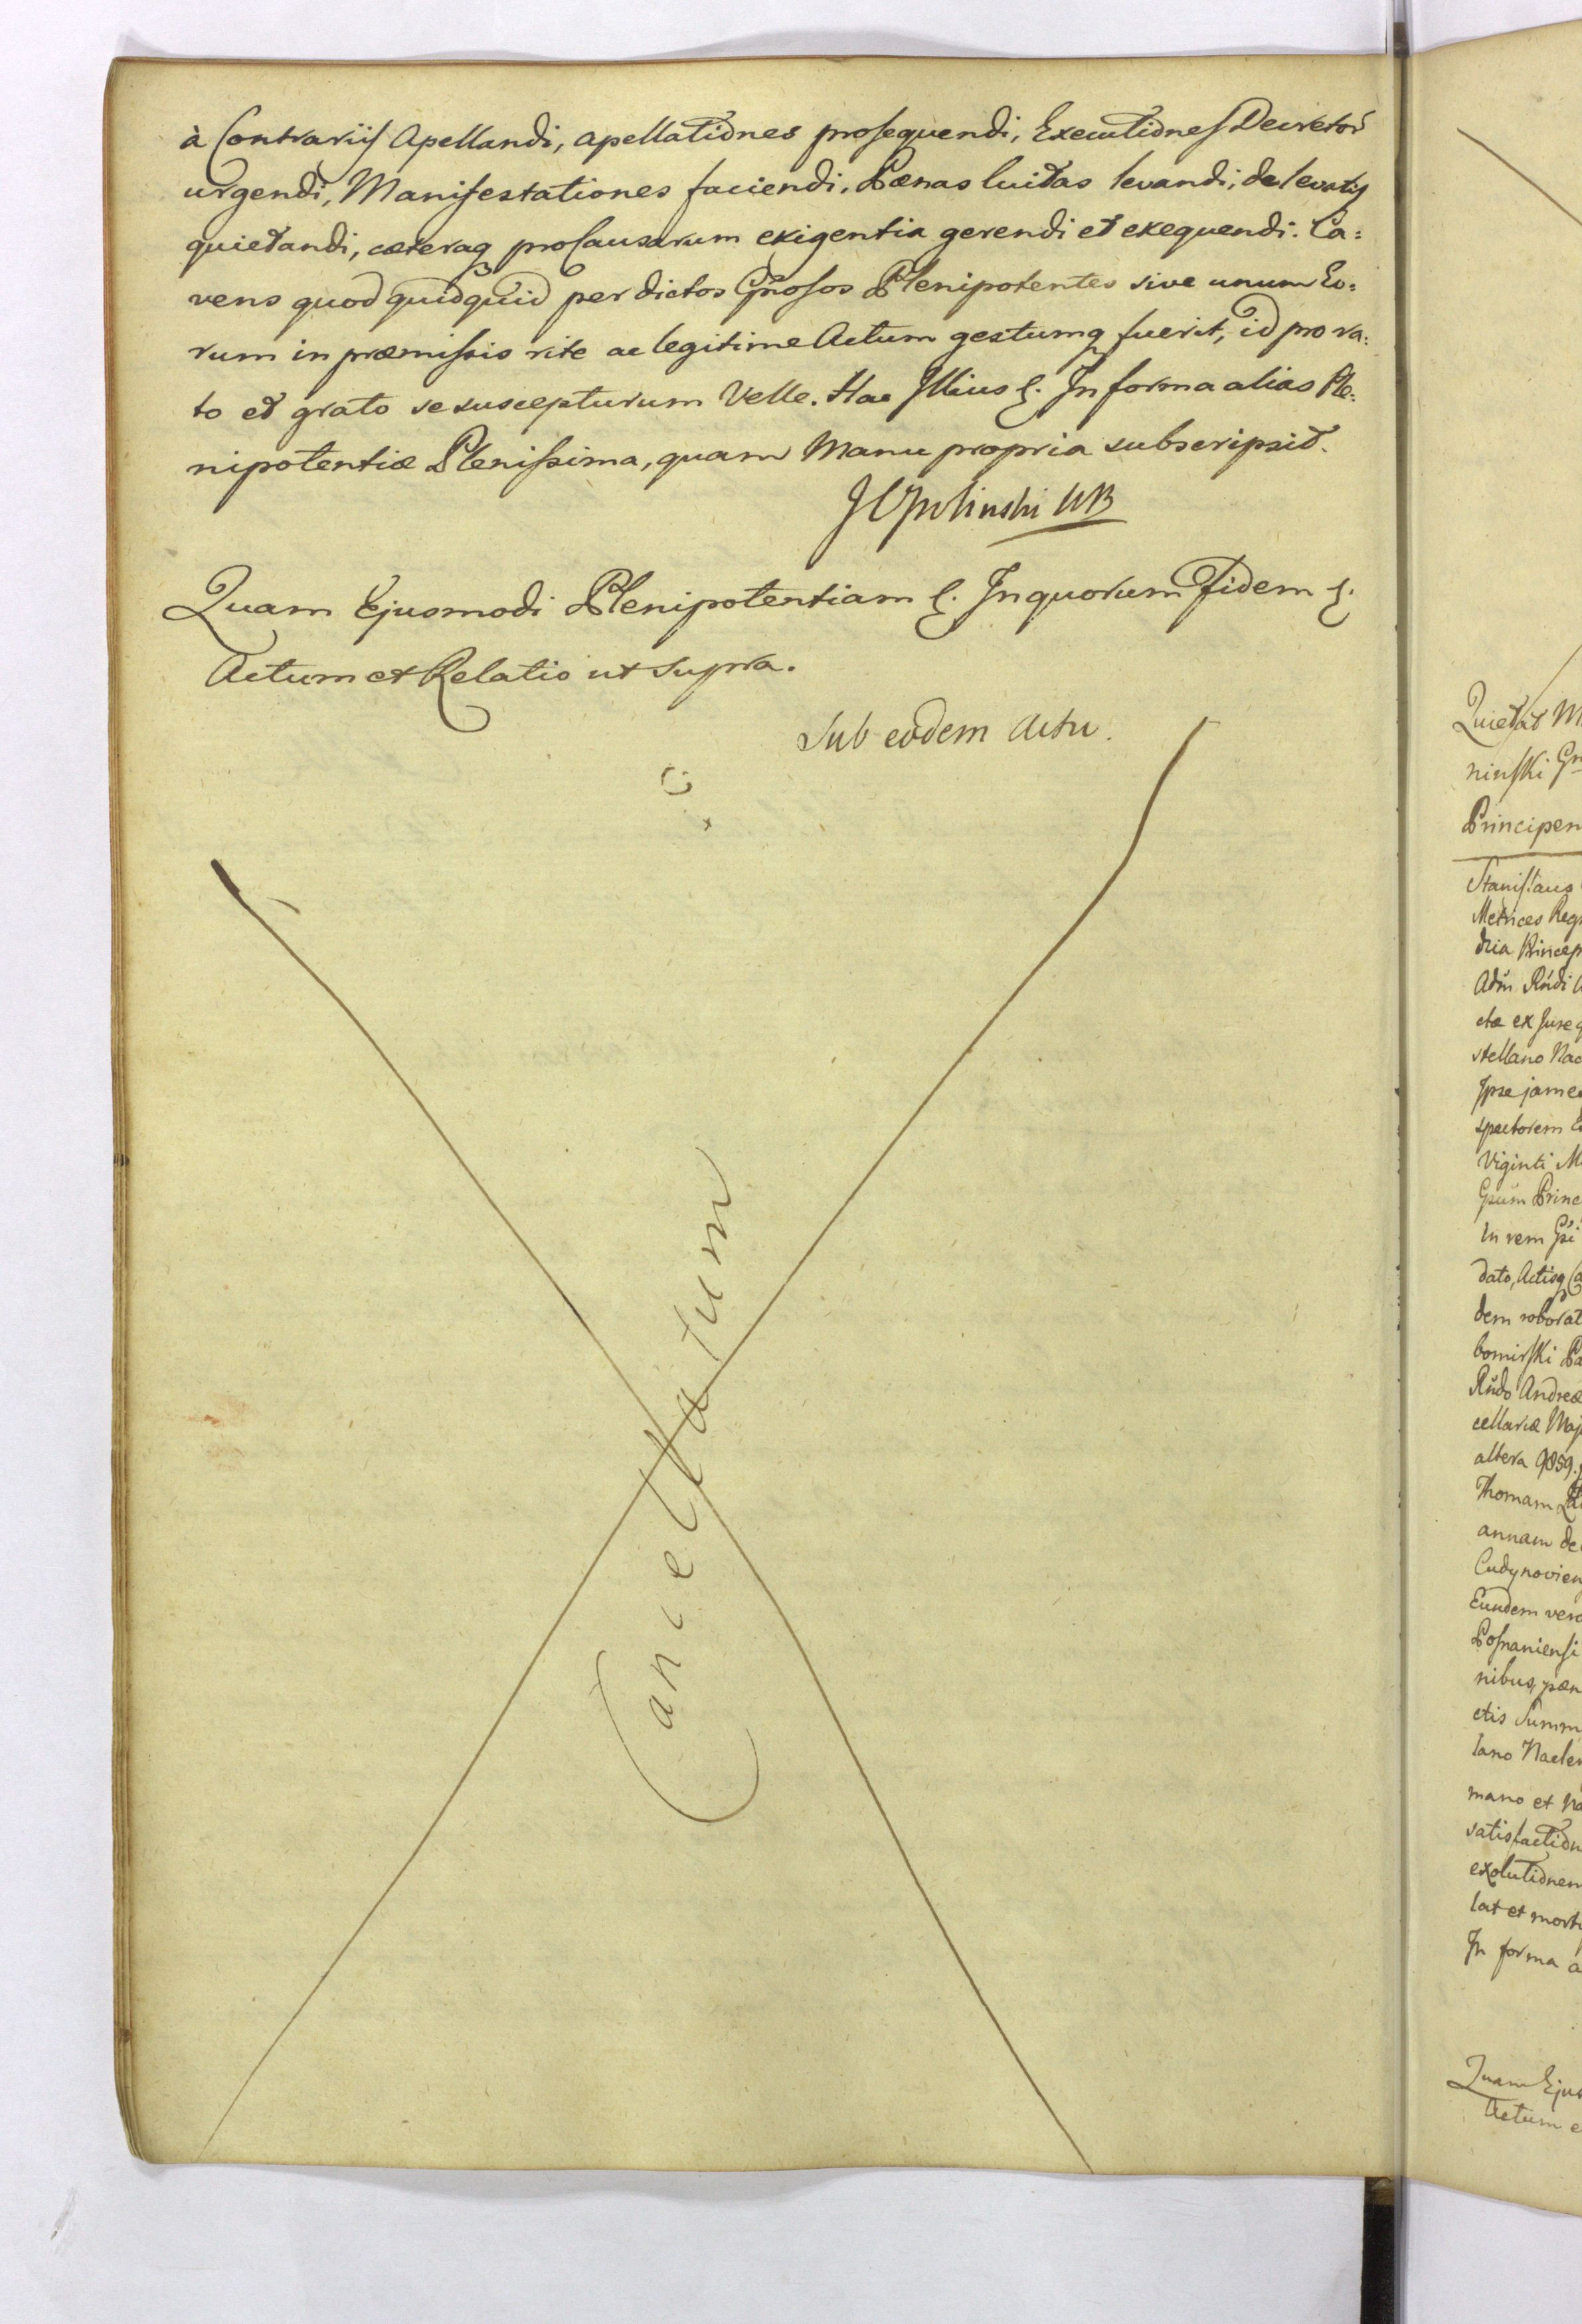 à Contrariis Apellandi, apellationes prosequendi, Executiones Decretor
urgendi, Manifestationes faciendi. Pœnas luitas levandi, de levatis
quietandi, cæteraq pro Causarum exigentia gerendi et exequendi. Ca:
vens quod quidquid per dictos Gnosos Plenipotentes sive unum Eo:
rum in præmissis rite ac legitime Actum gestumq fuerit, id pro ra:
to et grato se suscepturum Velle. Hac Illius &. In forma alias Ple:
nipotentiæ Plenissima, quam Manu propria subscripsit.
Quam Ejusmodi Plenipotentiam &. In quorum Fidem &.
Actum et Relatio ut supra.
Sub eodem Actu.
Cancellatum
Quietat M
ninski Gn
Principem
Stanislaus
Metrices Reg
dria Princep
Adm Rndi
ctæ ex Jure
stellano Nac
Ipse jam
spectorem
Viginti M
Gsum Princ
in rem Gsi
dato, Actisq
dem roborat
bomirski Pa
Rndo Andreæ
cellariæ Maj
altera 1859.
Thomam
annam de
Cudynovien
Eundem vero
Posnaniensi
nibus, pæn
ctis Summ
lano Naclen
mano et Na
satisfaction
exolutionem
lat et mort
In forma a
Quam Ejus
Actum e